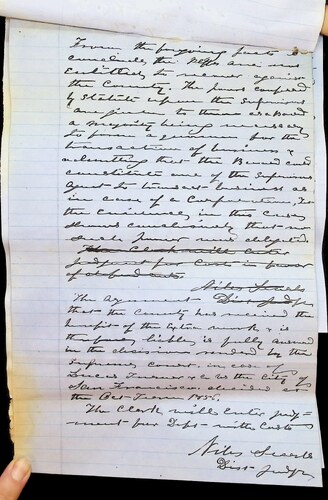 From the forgoing facts I
conclude the Plffs are not
Entitled to recover against
the County. The power confered
by Statute upon the Supervisors
are given to them as a Board
a majority being necessary
to form a quorum for the
transaction of business &
admitting that the Board could
constitute one of the Supervisors
agent to transact business as
in case of a Corporation, Yet
the evidence in this Case
shows conclusively that no
such power was delegated
The Clerk will enter
Judgment for Costs in favor
of defendants
Niles Searls
Dist Judge
The Argument
that the County has received the
benefit of the extra work & is
therefore liable, is fully answered
in the decision rendered by the
Supreme Court, in case of
Lucas Turner & Co vs the City of
San Francisco decided at
the Oct Term 1856.
The Clerk will enter judg-
ment for Deft with Costs
Niles Searls
Dist Judge